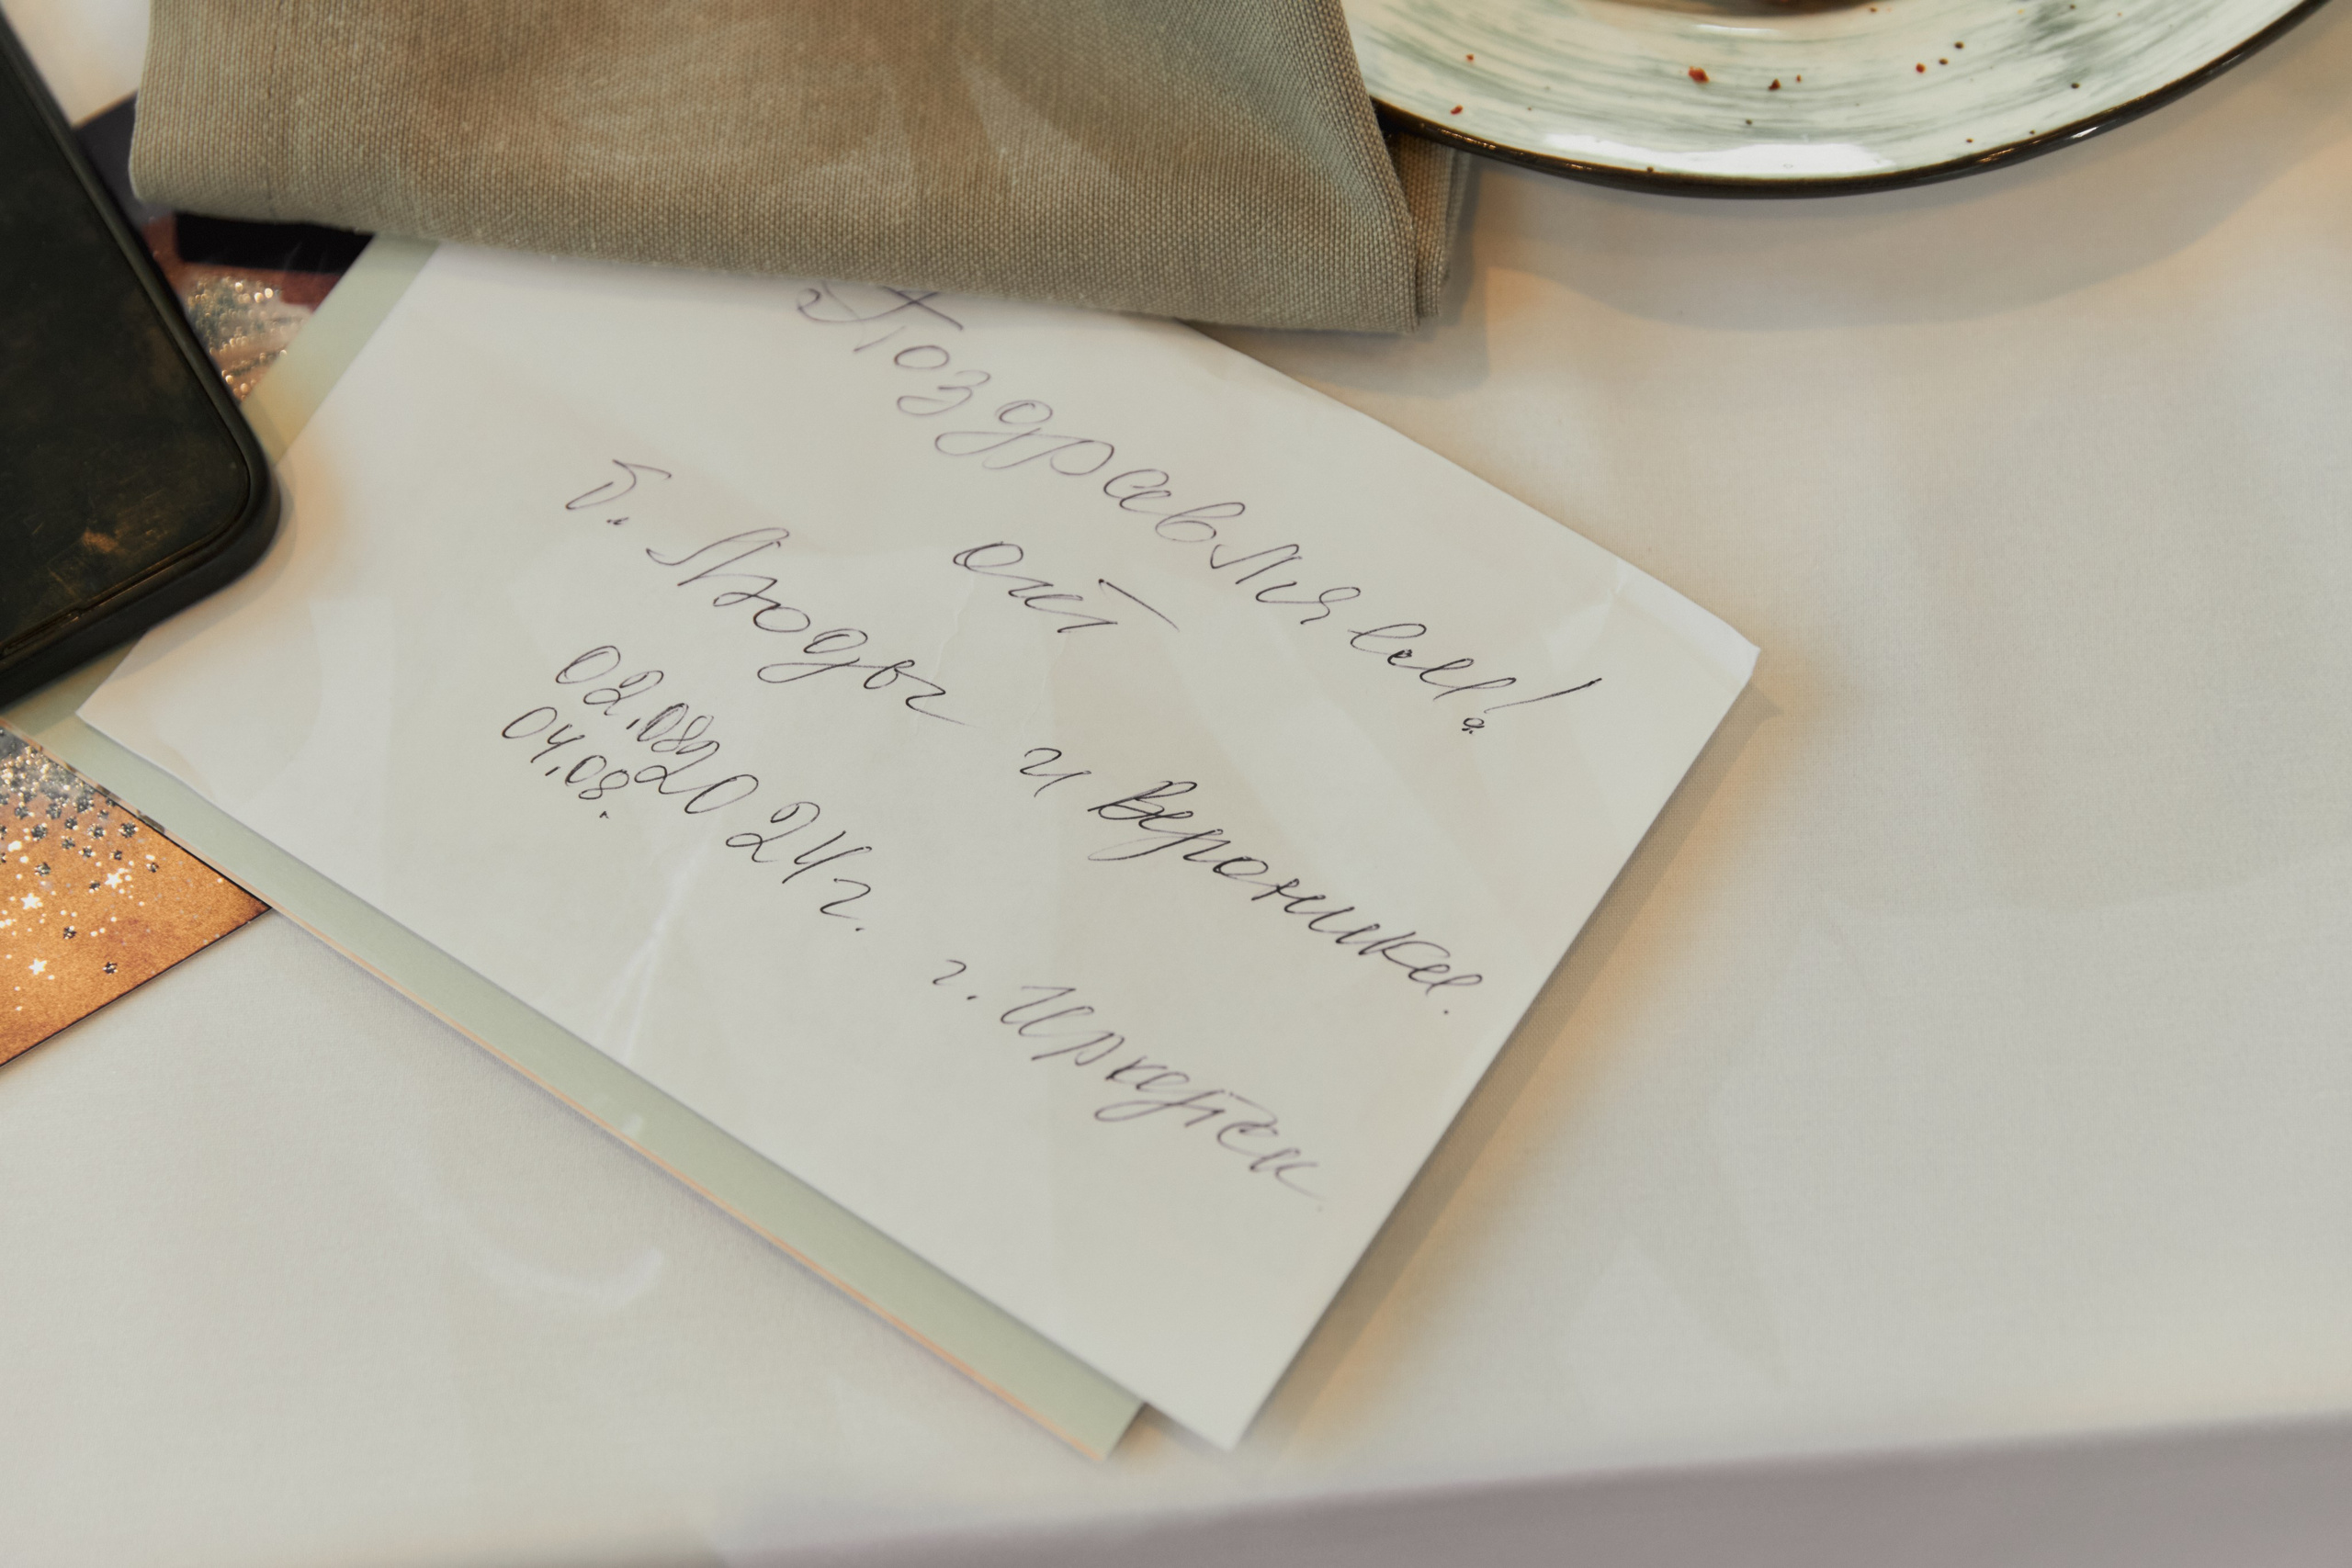 Поздравляем!
от
б. Люды и Вероники.
02.08.2024г. г. Иркутск
04.08.